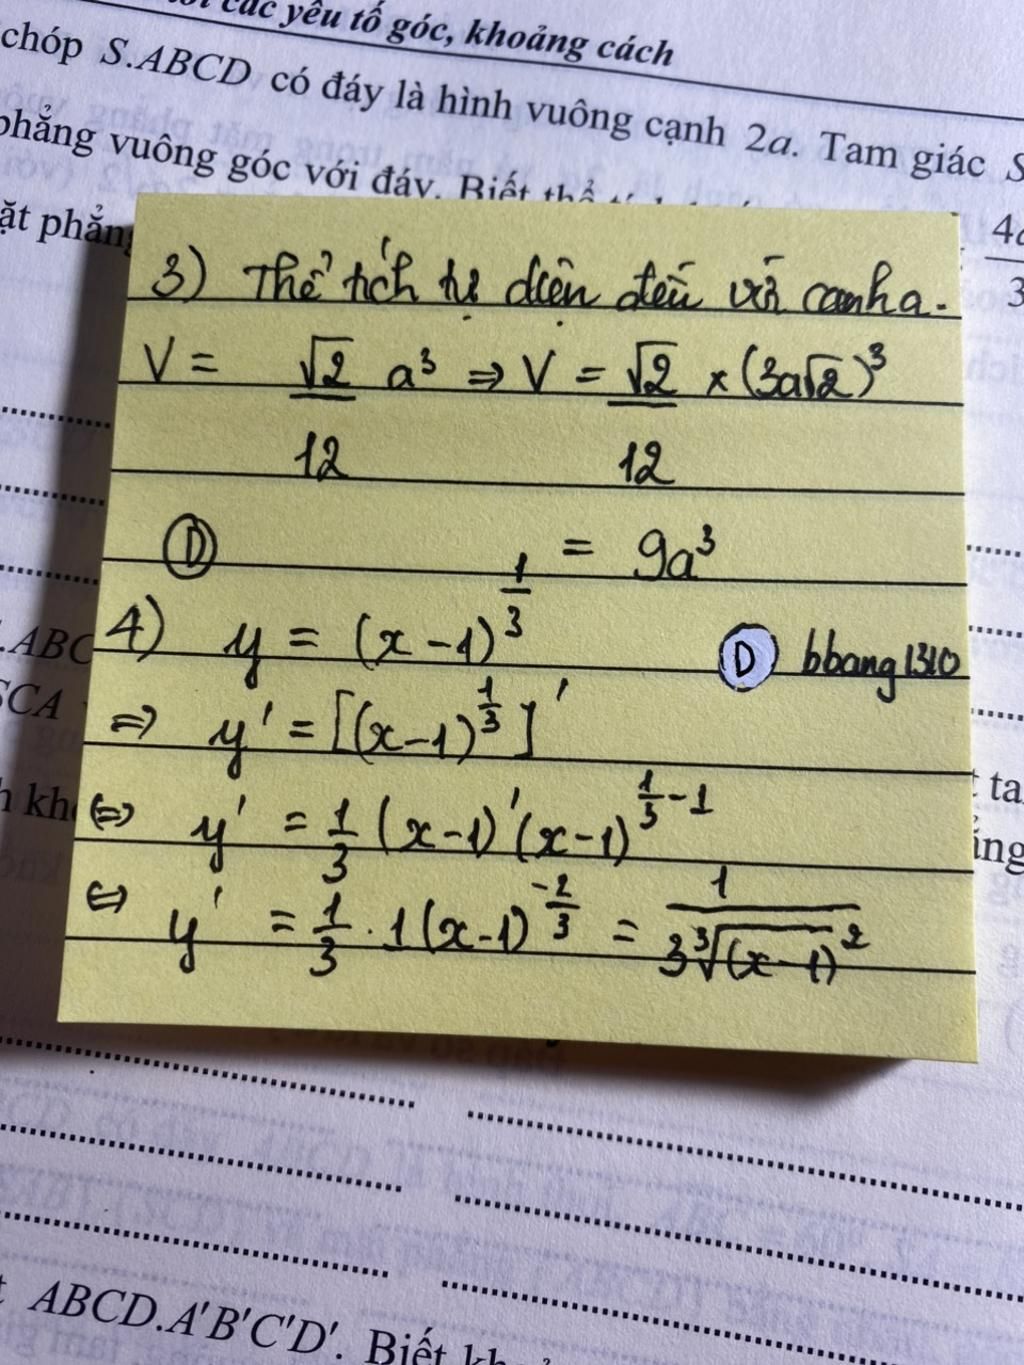 các yếu tố góc, khoảng cách
chóp S.ABCD có đáy là hình vuông cạnh 2a. Tam giác S
phẳng vuông góc với đáy. Biết
ặt phẳng
4a
3
3) Thể tích tứ diện đều với cạnh a.
V = √2/12 a³ ⇒ V = √2/12 × (3a√2)³
Ⓓ = 9a³
4) y = (x-1)^(1/3)
Ⓓ bbang1310
⇒ y' = [(x-1)^(1/3)]'
⇔ y' = 1/3 (x-1)'(x-1)^(1/3 - 1)
⇔ y' = 1/3 . 1(x-1)^(-2/3) = 1/(3∛(x-1)²)
.ABC
SCA
ABCD.A'B'C'D'. Biết